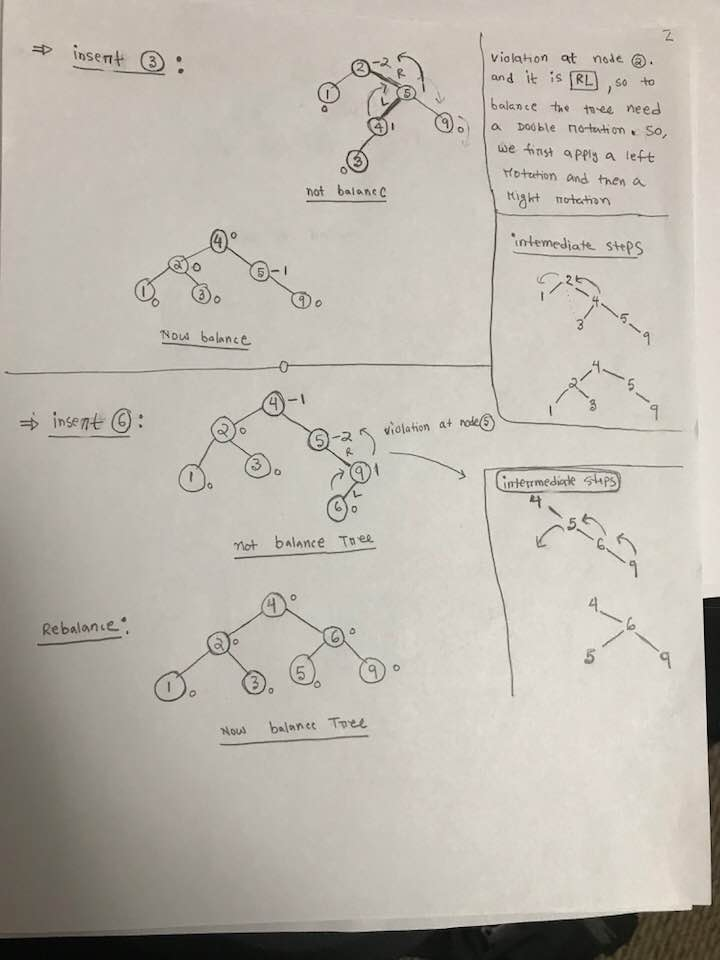 2
⇒ insert ③ :
2 -2
R
1 0
5
L
4 1
9 0
3 0
not balance
violation at node ②.
and it is RL, so to
balance the tree need
a Double rotation. So,
we first apply a left
rotation and then a
right rotation
4 0
2 0
5 -1
1 0
3 0
9 0
Now balance
intemediate steps
2
1 4
3 5
9
4
2 5
1 3 9
⇒ insert ⑥ :
4 -1
2 0
5 -2
R
violation at node ⑤
1 0
3 0
9 1
L
6 0
not balance Tree
intermediate steps
4
5
6
9
4
6
5 9
Rebalance:
4 0
2 0
6 0
1 0
3 0
5 0
9 0
Now balance Tree